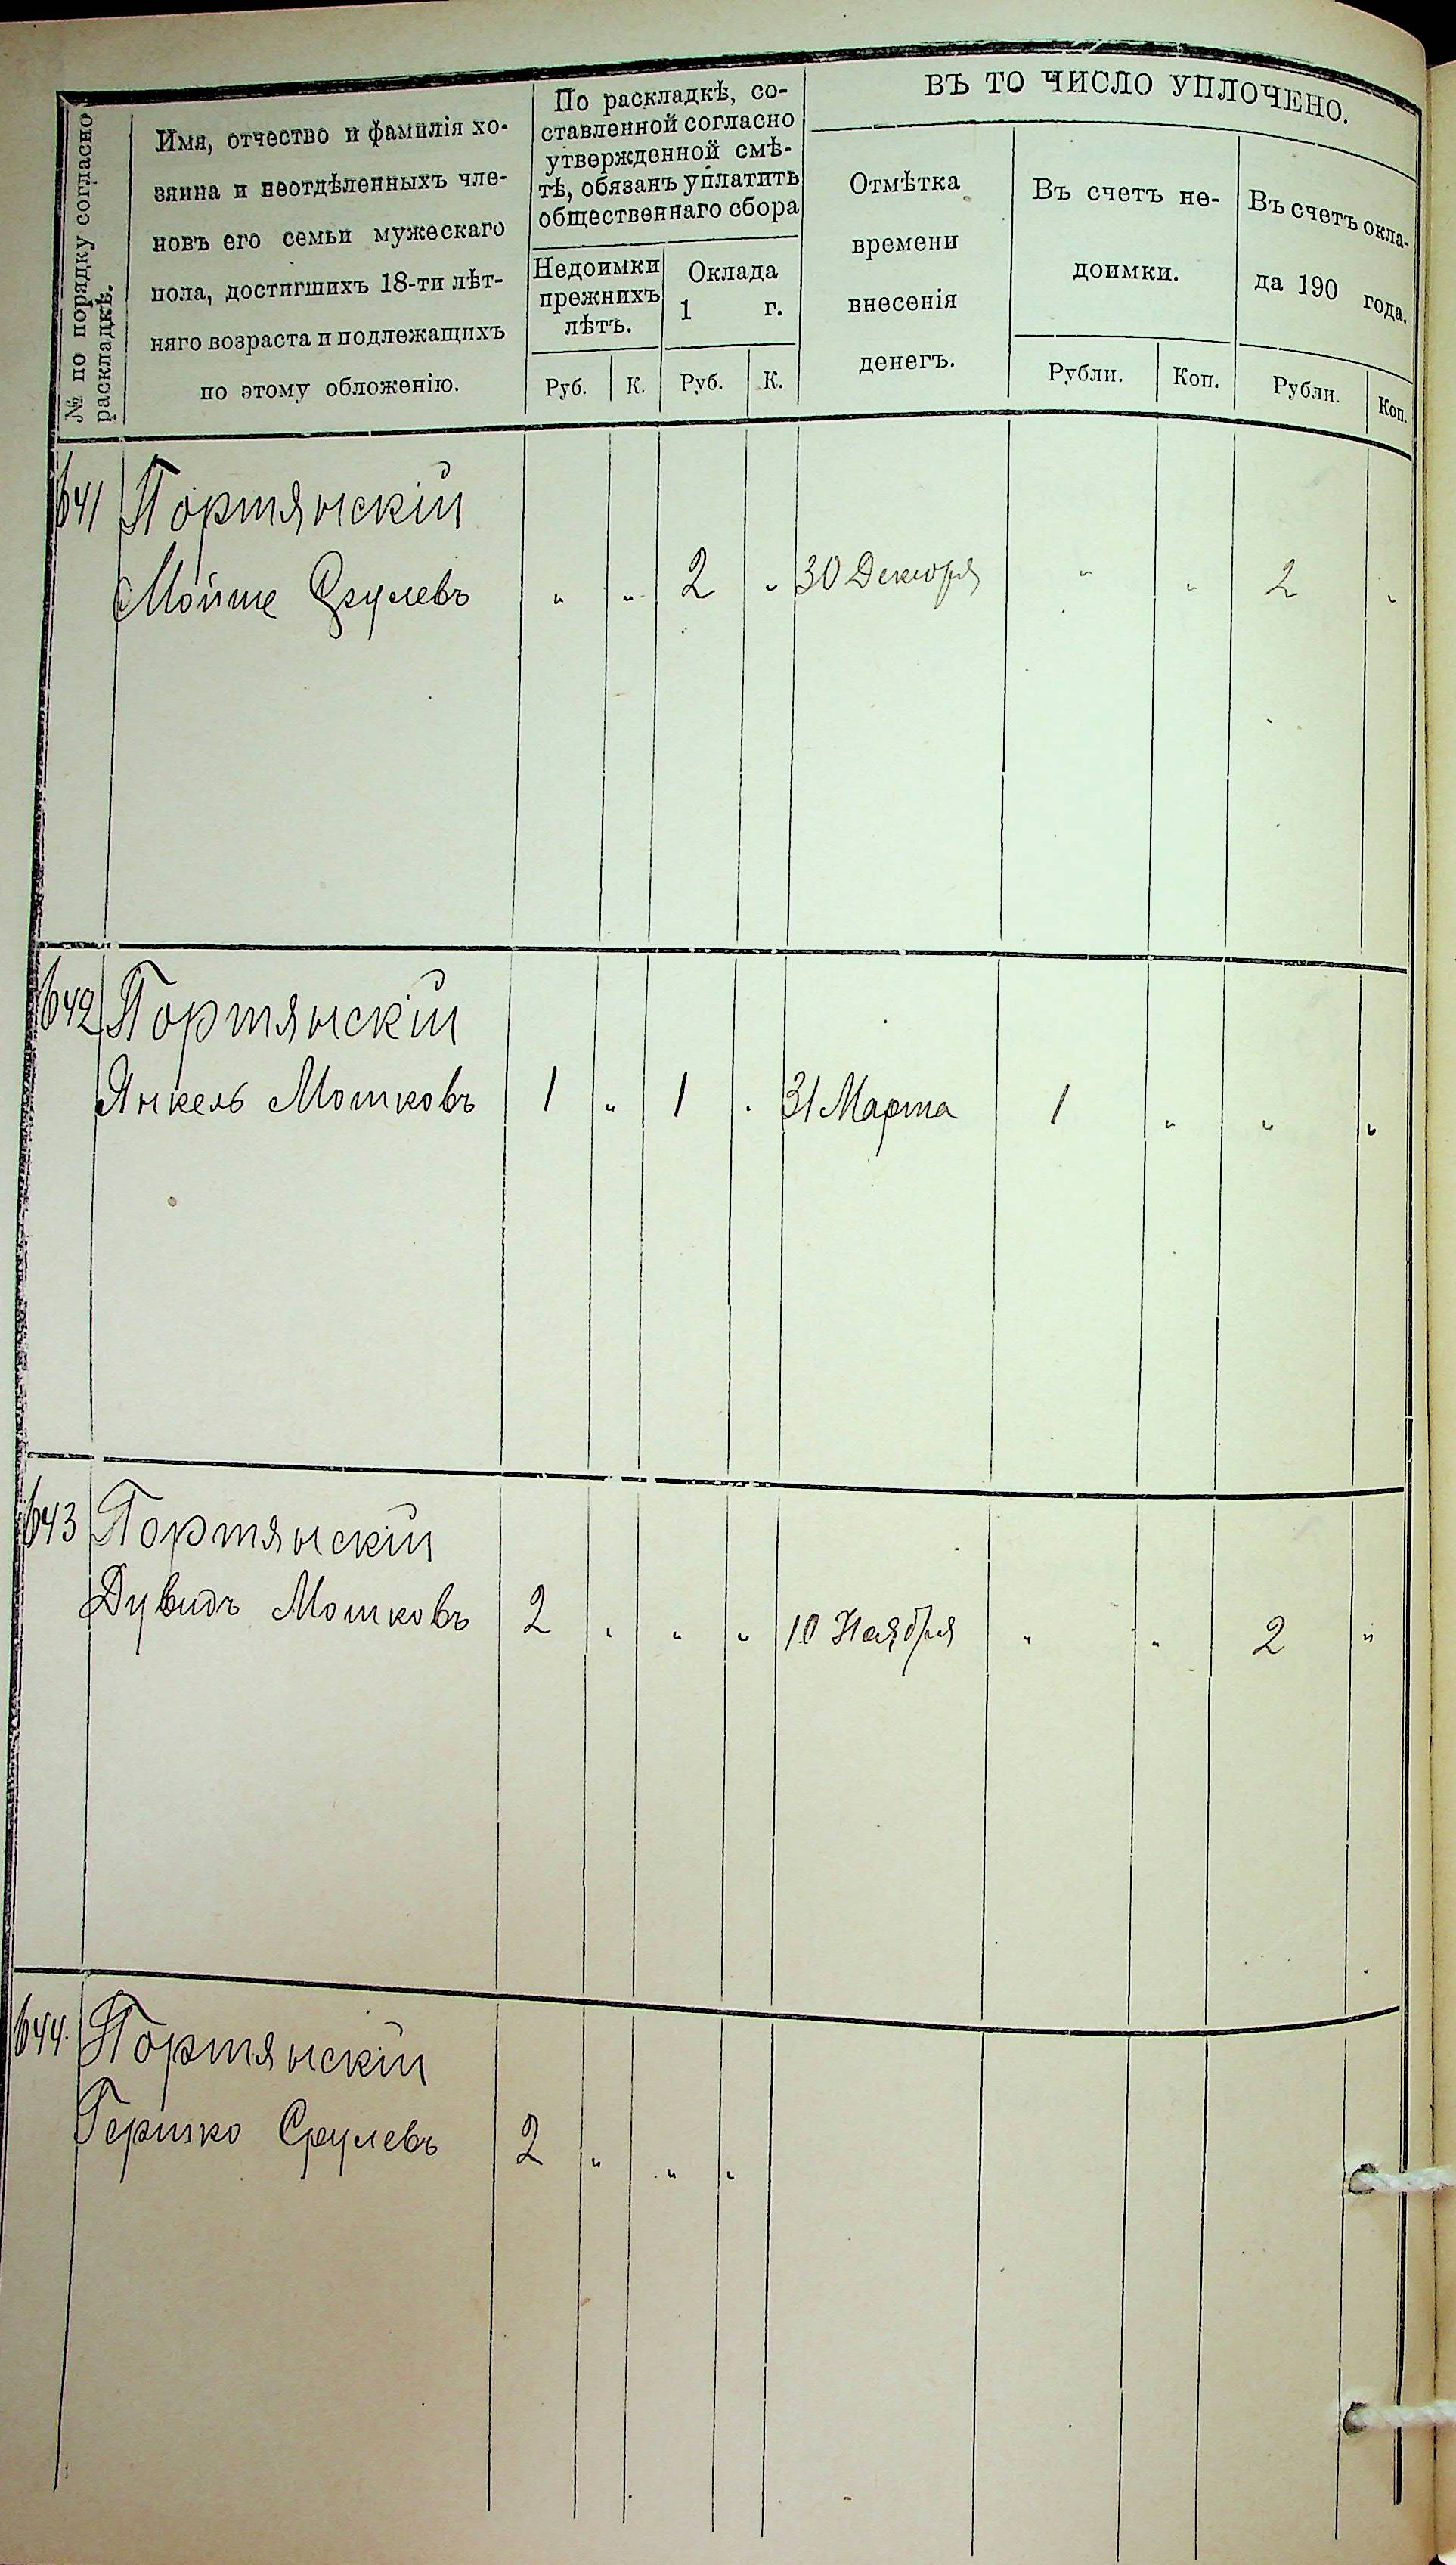 № по порядку согласно
раскладкѣ.
Имя, отчество и фамилія хо-
зяина и неотдѣленныхъ чле-
новъ его семьи мужескаго
пола, достигшихъ 18-ти лѣт-
няго возраста и подлежащихъ
по этому обложенію.
По раскладкѣ, со-
ставленной согласно
утвержденной смѣ-
тѣ, обязанъ уплатить
общественнаго сбора
Недоимки
прежнихъ
лѣтъ.
Оклада
1 г.
Руб. К. Руб. К.
ВЪ ТО ЧИСЛО УПЛОЧЕНО.
Отмѣтка
времени
внесенія
денегъ.
Въ счетъ не-
доимки.
Рубли. Коп.
Въ счетъ окла-
да 190 года.
Рубли. Коп.
641 Портянскій
Мойше Срулевъ „ „ 2 „ 30 Декабря „ „ 2 „
642 Портянскій
Янкель Мошковъ 1 „ 1 „ 31 Марта 1 „ „ „
643 Портянскій
Дувидъ Мошковъ 2 „ „ „ 10 Ноября „ „ 2 „
644 Портянскій
Гершко Срулевъ 2 „ „ „